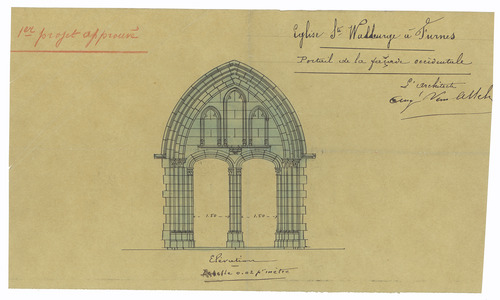 1er projet approuvé
Eglise Ste Walburge à Furnes
Portail de la façade occidentale
L'architecte
Aug. Van Assche
1.50
1.50
Elévation
Echelle 0.02 pr mètre